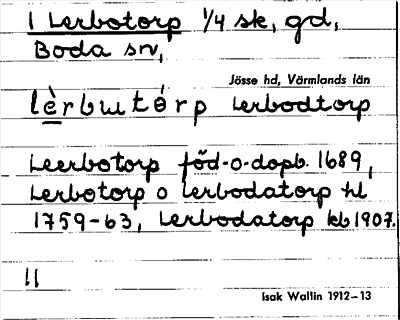 1 Lerbotorp 1/4 sk, gd,
Boda sn,
Jösse hd, Värmlands län
lèrbɯtórp Lerbodtorp
Leerbotorp föd-o-dopb. 1689,
Lerbotorp o Lerbodatorp hl
1759-63, Lerbodatorp kb 1907.
11
Isak Wallin 1912-13